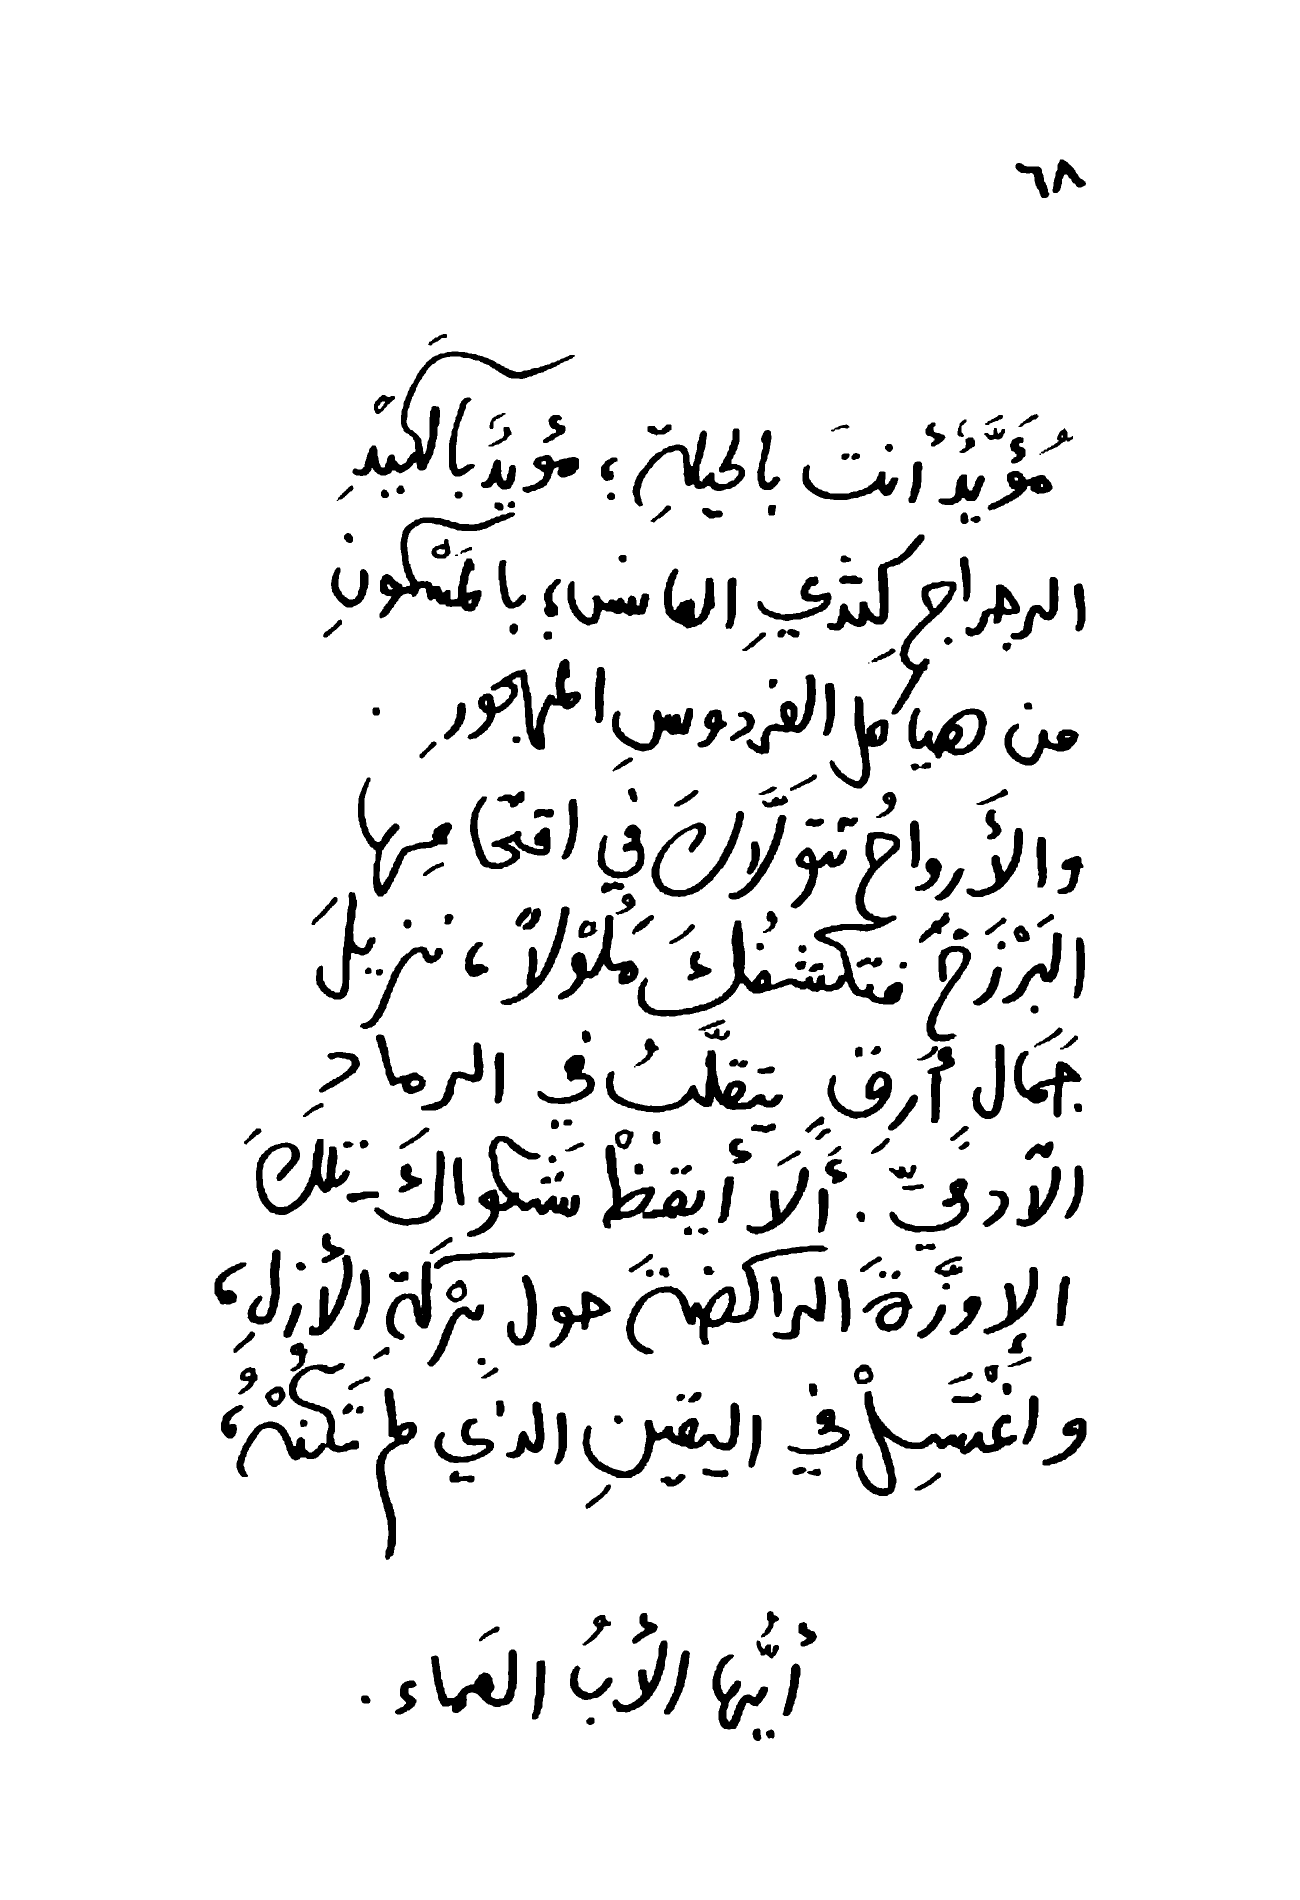 ٦٨
مُؤَيَّدٌ أنتَ بالحيلةِ؛ مؤيدٌ بالكَيْدِ
الرجراجِ كثديِ الماس؛ بالمَسْكونِ
من هياكل الفردوسِ المهجورِ .
والأَرواحُ تتولَّاكَ في اقتحامِها
البَرْزَخَ فتكشفُكَ مَلُوْلاً، نزيلَ
جَمَالٍ أَرِقٍ يتقلَّبُ في الرمادِ
الآدميِّ . أَلَا أيقظْ شَكواكَ ـ تلكَ
الإوزَّةَ الراكضةَ حول بِرْكَةِ الأزلِ،
واغْتَسِلْ في اليقينِ الذي لم تَكُنْهُ،
أيُّها الأبُ العَماء .